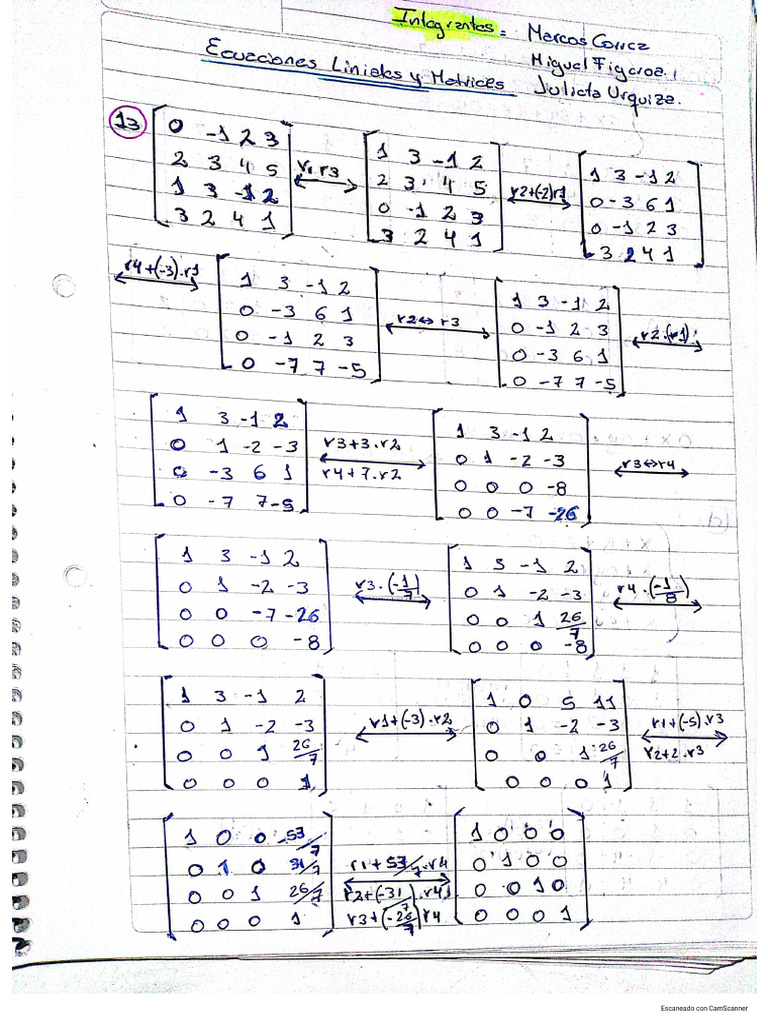 Integrantes: Marcos Conca
Miguel Figaroa.
Julieta Urquiza.
Ecuaciones Lineales y Matrices
13
0 -1 2 3
2 3 4 5
1 3 -1 2
3 2 4 1
r1 r3
1 3 -1 2
2 3 4 5
0 -1 2 3
3 2 4 1
r2+(-2)r1
1 3 -1 2
0 -3 6 1
0 -1 2 3
3 2 4 1
r4+(-3)·r1
1 3 -1 2
0 -3 6 1
0 -1 2 3
0 -7 7 -5
r2↔r3
1 3 -1 2
0 -1 2 3
0 -3 6 1
0 -7 7 -5
r2·(-1)
1 3 -1 2
0 1 -2 -3
0 -3 6 1
0 -7 7 -5
r3+3·r2
r4+7·r2
1 3 -1 2
0 1 -2 -3
0 0 0 -8
0 0 -7 -26
r3↔r4
1 3 -1 2
0 1 -2 -3
0 0 -7 -26
0 0 0 -8
r3·(-1/7)
1 3 -1 2
0 1 -2 -3
0 0 1 26/7
0 0 0 -8
r4·(-1/8)
1 3 -1 2
0 1 -2 -3
0 0 1 26/7
0 0 0 1
r1+(-3)·r2
1 0 5 11
0 1 -2 -3
0 0 1 26/7
0 0 0 1
r1+(-5)·r3
r2+2·r3
1 0 0 -53/7
0 1 0 31/7
0 0 1 26/7
0 0 0 1
r1+53/7·r4
r2+(-31/7)·r4
r3+(-26/7)r4
1 0 0 0
0 1 0 0
0 0 1 0
0 0 0 1
Escaneado con CamScanner